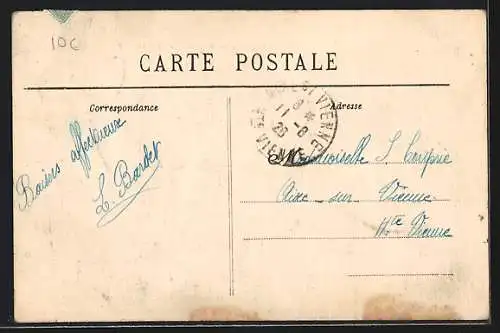 10c
CARTE POSTALE
Correspondance
Adresse
11-8
26
VIENNE
Baisers affectueux
L. Bardet
Mademoiselle S.
Aixe-sur-Vienne
Hte Vienne